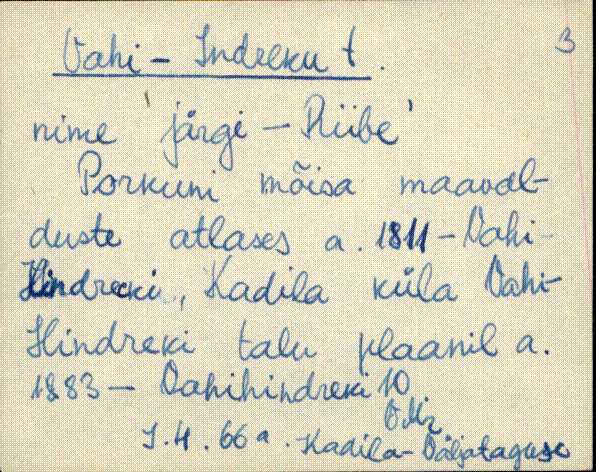 3
Vahi - Indreku t.
nime järgi - Riibe'
Porkuni mõisa maaval-
duste atlases a. 1811 - Vahi-
Hindrecki, Kadila küla Vahi-
Hindreki talu plaanil a.
1883 - Vahihindreki 10
VMr
J.4.66a. Kadila-Väljataguse